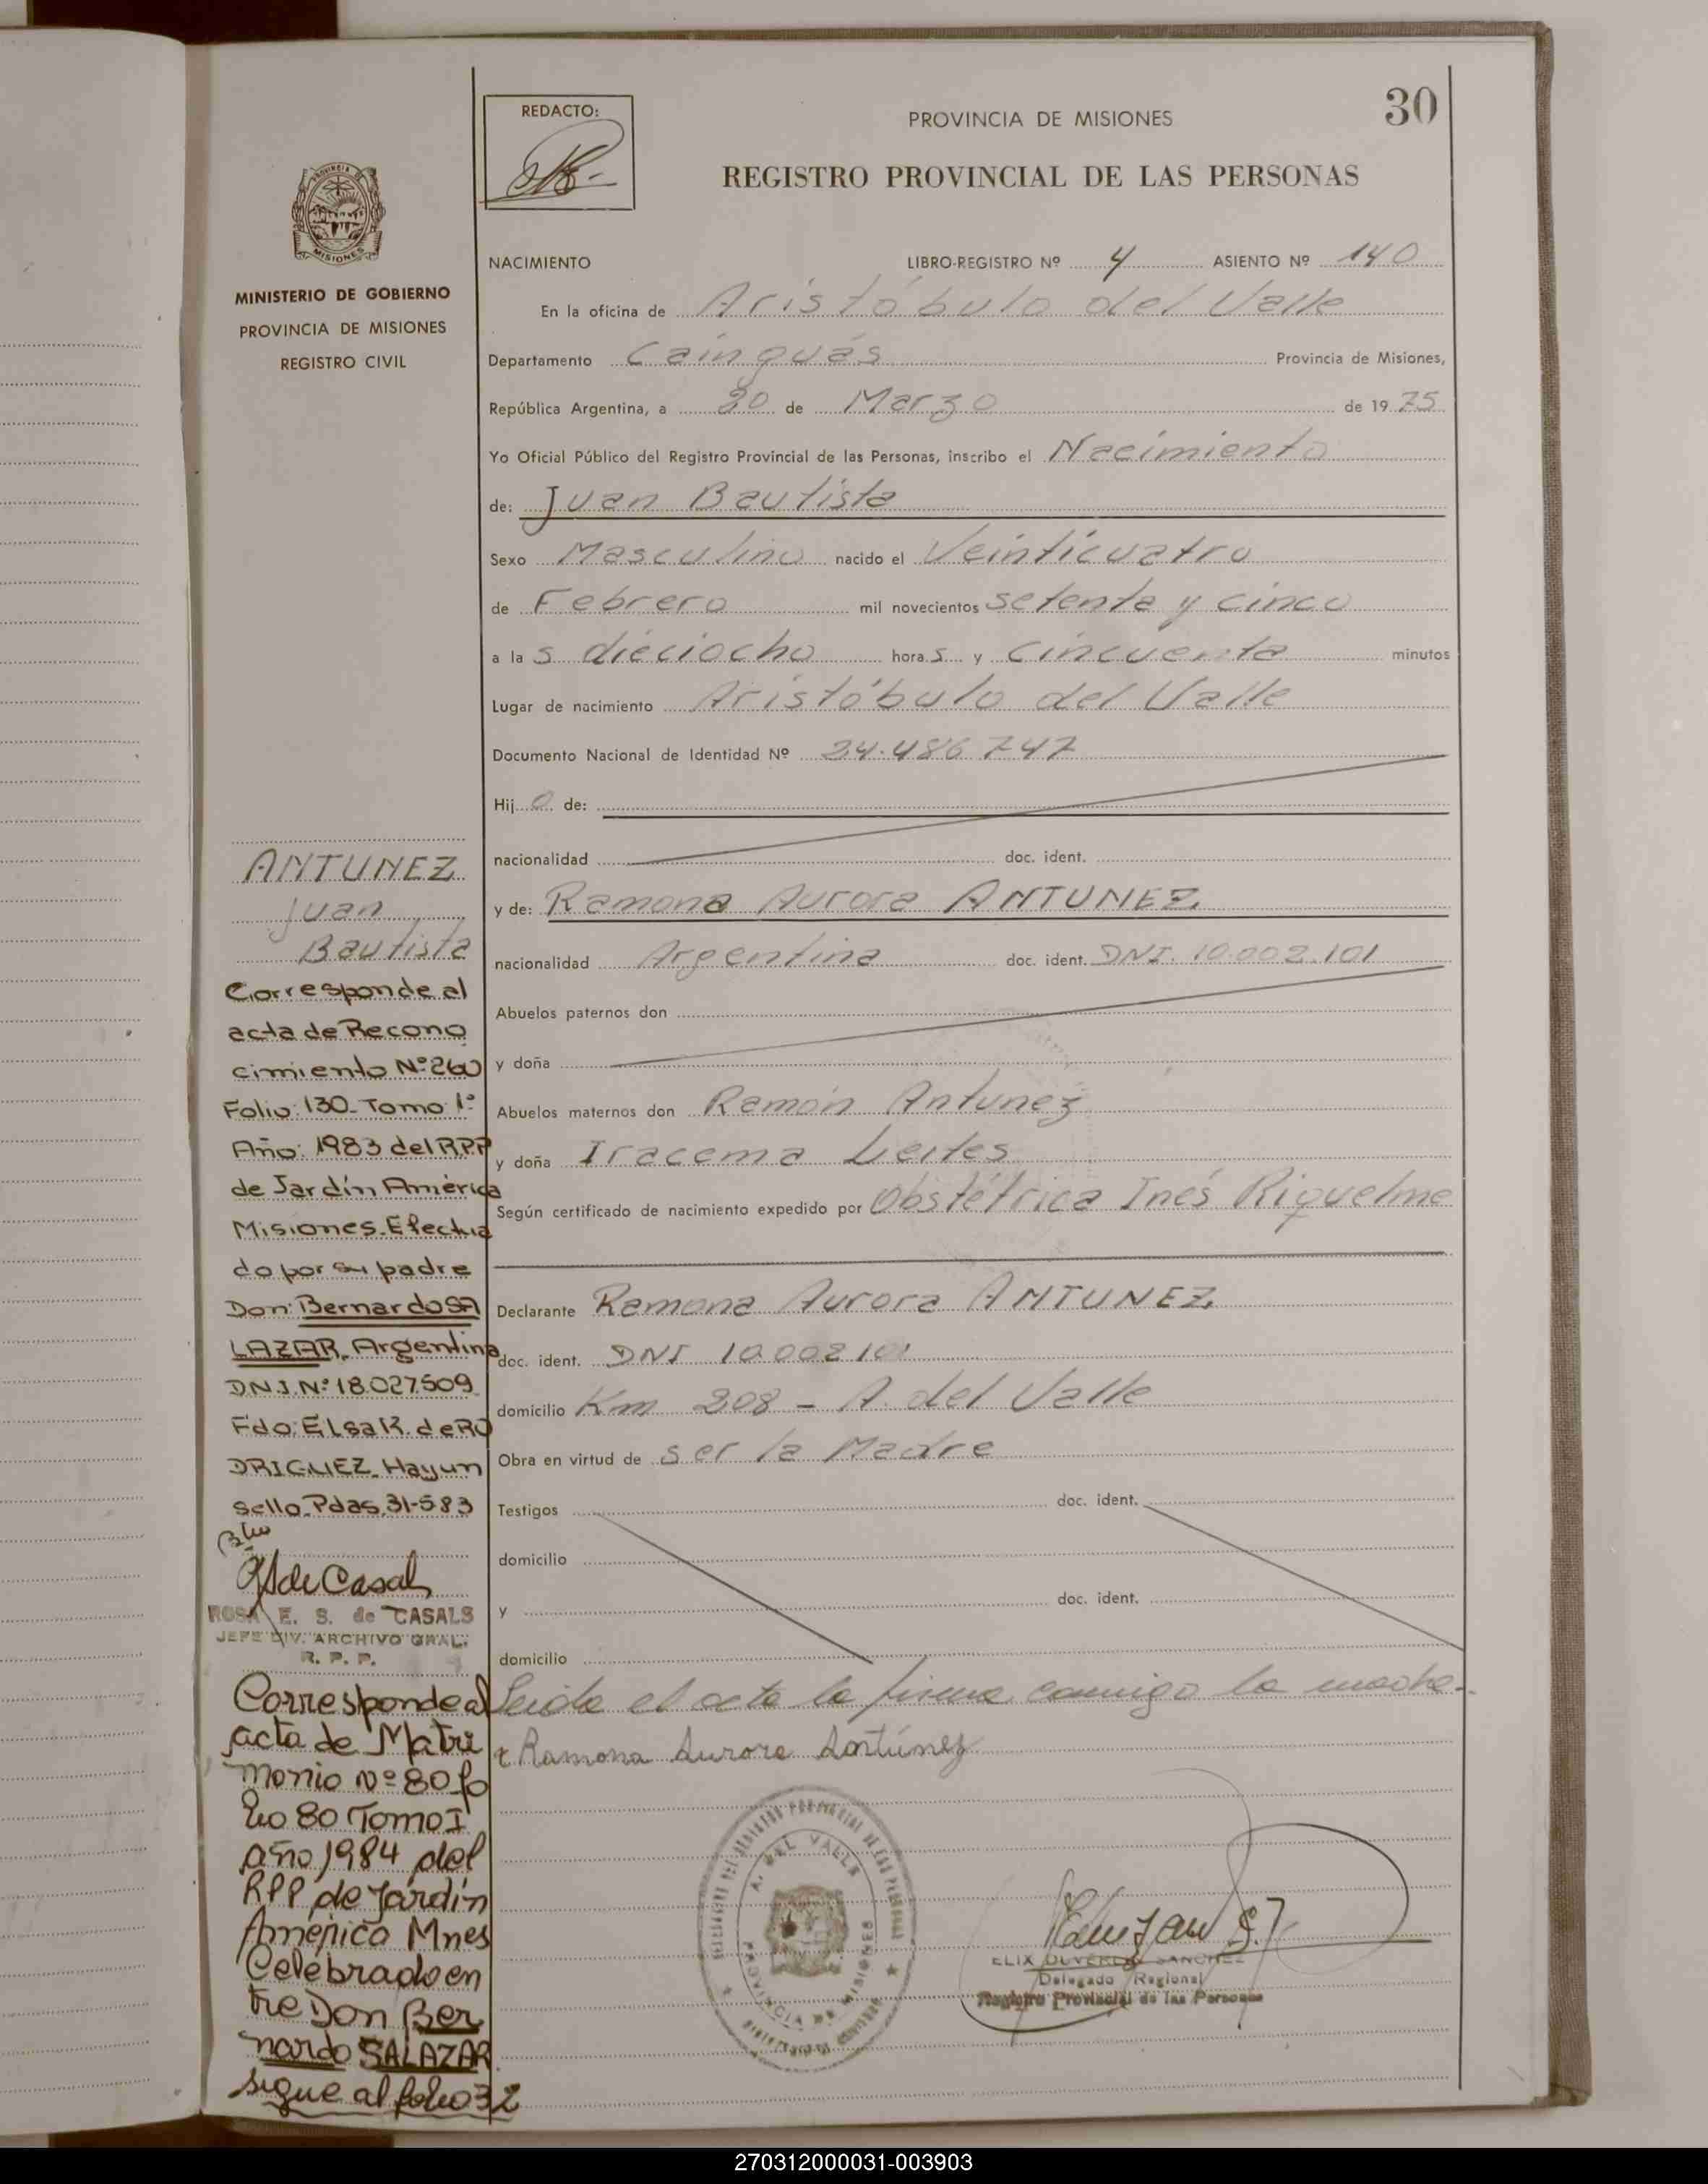 30
REDACTO:
PROVINCIA DE MISIONES
REGISTRO PROVINCIAL DE LAS PERSONAS
MISIONES
MINISTERIO DE GOBIERNO
PROVINCIA DE MISIONES
REGISTRO CIVIL
NACIMIENTO LIBRO-REGISTRO Nº 4 ASIENTO Nº 140
En la oficina de Aristóbulo del Valle
Departamento Cainguás Provincia de Misiones,
República Argentina, a 20 de Marzo de 1975
Yo Oficial Público del Registro Provincial de las Personas, inscribo el Nacimiento
de: Juan Bautista
Sexo Masculino nacido el Veinticuatro
de Febrero mil novecientos setenta y cinco
a las dieciocho horas y cincuenta minutos
Lugar de nacimiento Aristóbulo del Valle
Documento Nacional de Identidad Nº 24.486.747
Hijo de:
nacionalidad doc. ident.
y de: Ramona Aurora ANTUNEZ
nacionalidad Argentina doc. ident. DNI. 10.002.101
Abuelos paternos don
y doña
Abuelos maternos don Ramón Antunez
y doña Iracema Leites
Según certificado de nacimiento expedido por Obstétrica Inés Riquelme
Declarante Ramona Aurora ANTUNEZ
doc. ident. DNI 10.002.101
domicilio Km 208 - A. del Valle
Obra en virtud de ser la Madre
Testigos doc. ident.
domicilio
y doc. ident.
domicilio
Leida el acta la firma conmigo la madre.-
Ramona Aurora Antúnez
A. DEL VALLE
PROVINCIA DE MISIONES
Delegado Regional
Registro Provincial de las Personas
ANTUNEZ
Juan
Bautista
Corresponde al
acta de Recono
cimiento Nº 260
Folio: 130- Tomo 1º
Año: 1983 del R.P.P
de Jardín América
Misiones. Efectua
do por su padre
Don: Bernardo SA
LAZAR. Argentina
D.N.I. Nº 18.027.509
Fdo: Elsa K. de RO
DRIGUEZ. Hay un
sello. Pdas, 31-5-83
ROSA E. S. de CASALS
JEFE DIV. ARCHIVO GRAL.
R. P. P.
Corresponde al
acta de Matri
monio Nº 80 fo
lio 80 Tomo I
año 1984 del
RPP de Jardín
América Mnes
Celebrado en
tre Don Ber
nardo SALAZAR
sigue al folio 32
270312000031-003903